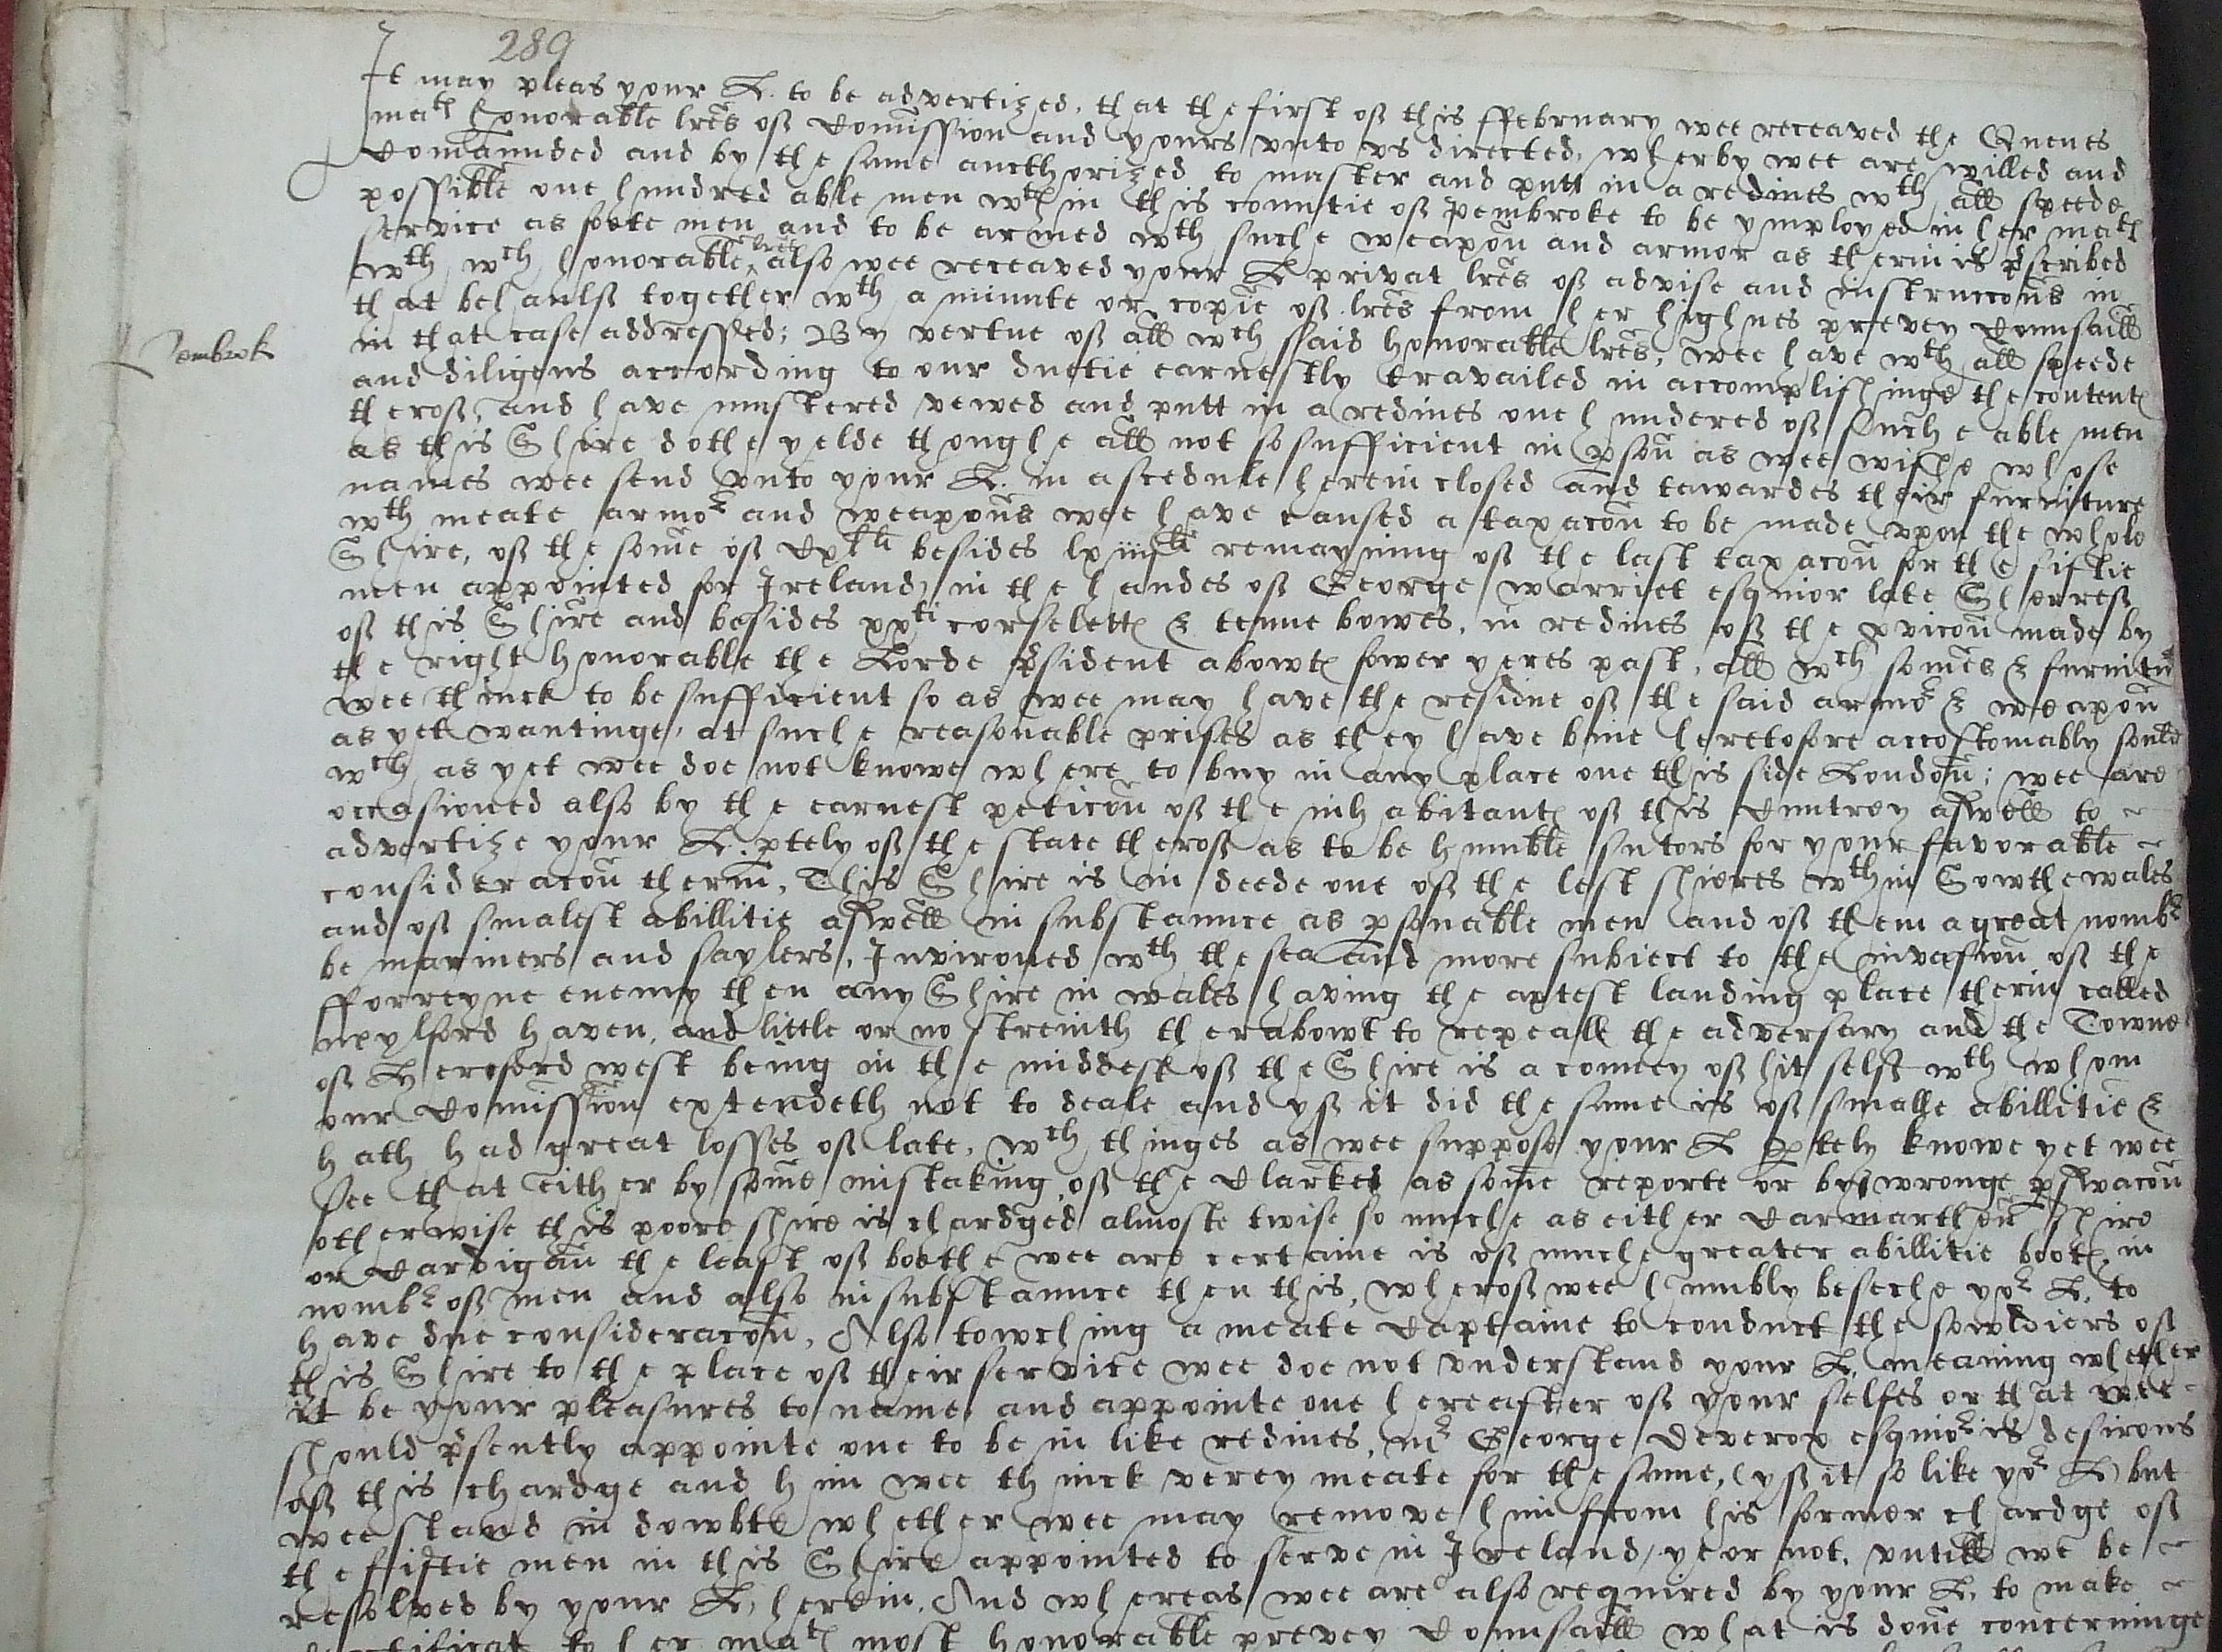 289
It may pleas your L. to be advertized, that the first of this ffebruary wee receaved the Quenes
matꝭ honorable lr̃es of Com̃ission and yours vnto vs directed, wherby wee are willed and
Com̃aunded and by the same aucthorized to muster and putt in a redines wth all speede
possible one hundred able men wthin this countie of Pembroke to be ymployed in her matꝭ
service as foote men and to be armed wth suche weapoñ and armor as therin is p̃scribed
wth wch honorable lr̃es also wee receaved your L privat lr̃es of advise and instruccoñs in
that behaulf together wth a minute or copie of lr̃es from her highnes prevey Counsaill
Pembrok
in that case addressed; By vertue of all wch said honorable lr̃es, wee have wth all speede
and diligens according to our duetie earnestly travailed in accomplishinge the contentꝭ
therof, and have mustered vewed and putt in a redines one hundered of suche able men
as this Shire dothe yelde thoughe all not so sufficient in ꝑsoñ as wee wishe whose
names wee send vnto your L. in a scedule herein closed and towardes their furniture
wth meate armor and weapoñs wee have caused a taxacoñ to be made vpon the whole
Shire, of the som̃e of Cxxli besides lxiiijli remayning of the last taxacoñ for the fiftie
men appointed for Ireland, in the handes of George Warriet esquior late Sherref
of this Shire and besides xxti corselettꝭ & tenne bowes, in redines of the ꝓvicoñ made by
the right honorable the Lorde p̃sident abowtꝭ fower yeres past, all wch som̃es & furnitur
wee thinck to be sufficient so as wee may have the residue of the said armor & weapoñ
as yet wantinge, at suche reasonable prises as they have bine heretofore accostomably sould
wch as yet wee doe not knowe where to buy in any place one this side Londoñ; wee are
occasioned also by the earnest peticoñ of the inhabitantꝭ of this Cuntrey aswell to
advertize your L. ꝑtely of the state therof as to be humble sutors for your favorable
consideracoñ therin, This Shire is in deede one of the lest shieres wthin Sowthewales
and of smalest abillitie aswell in substaunce as ꝑsonable men and of them a great nombr
be mariners and saylers, Invironed wth the sea and more subiect to the invasioñ of the
fforreyne enemy then any Shire in wales having the aptest landing place therin called
mylford haven, and little or no streinth therabowt to repeall the adversary and the Towne
of Hereford west being in the middest of the Shire is a countey of hit self wth whom
our Com̃ission extendeth not to deale and yf it did the same is of smalle abillitie &
hath had great losses of late, wch thinges as wee suppose your L ꝑtely knowe yet wee
see that either by some mistaking of the Clarkes as some reporte or by wronge ꝑswacoñ
otherwise this poore shire is chardged almoste twise so muche as either Carmarthen shire
or Cardigañ the least of boethe wee are certaine is of muche greater abillitie bootꝭ in
nombr of men and also in substaunce then this, wherof wee humbly beseche yor L. to
have due consideracoñ, Also towching a meate Captaine to conduct the sowldiers of
this Shire to the place of their service wee doe not vnderstand your L. meaning whether
it be your pleasures to name and appointe one hereafter of your selfes or that wee
should p̃sently appointe one to be in like redines, mr George Deverox esquior is desirous
of this chardge and him wee thinck verey meate for the same, (yf it so like yor L) but
wee stand in dowbte whether wee may remove him from his former chardge of
the ffiftie men in this Shire appointed to serve in Ireland, ye or not, vntill we be
resolved by your L, herein, And whereas wee are also required by your L, to make
certificat to her matꝭ most honorable prevey Counsaill what is done concerninge